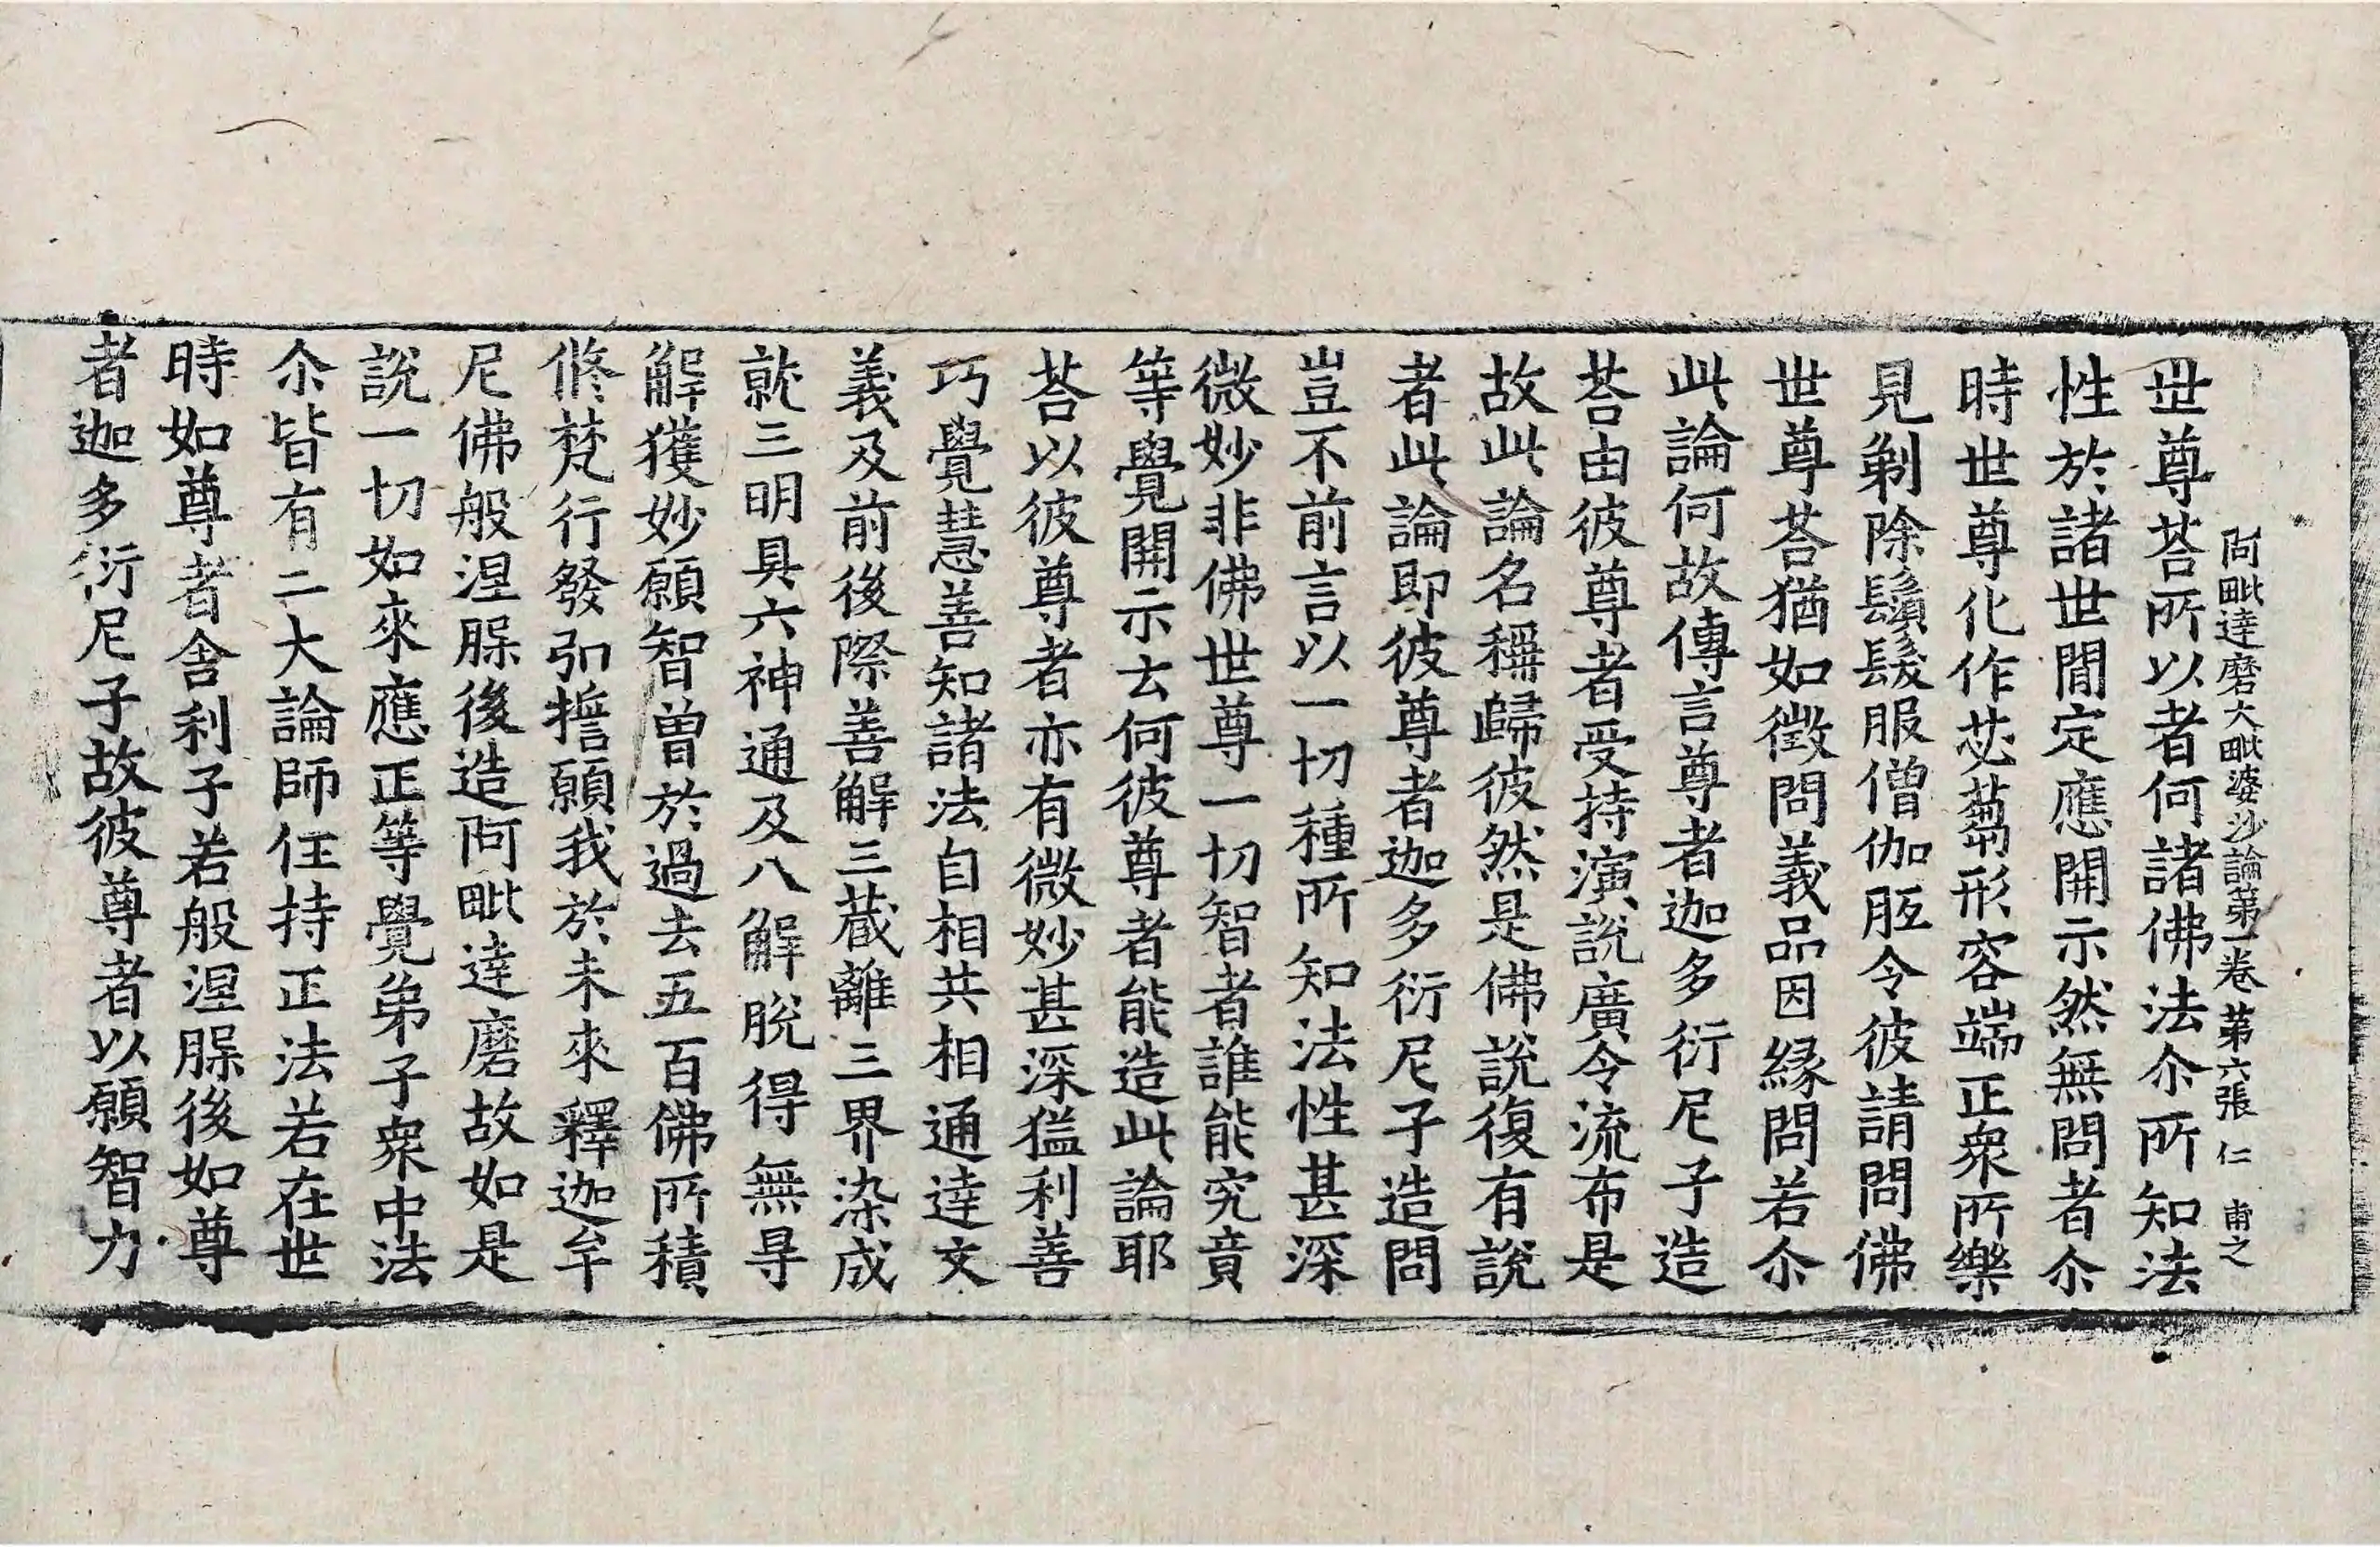 阿毗達磨大毗婆沙論第一卷 第六張 仁 甫之
世尊荅所以者何諸佛法尒所知法
性於諸世閒定應開示然無問者尒
時世尊化作苾蒭形容端正衆所樂
見剃除鬚髮服僧伽胝令彼請問佛
世尊荅猶如徵問義品因緣問若尒
此論何故傳言尊者迦多衍尼子造
荅由彼尊者受持演說廣令流布是
故此論名稱歸彼然是佛說復有說
者此論即彼尊者迦多衍尼子造問
豈不前言以一切種所知法性甚深
微妙非佛世尊一切智者誰能究竟
等覺開示云何彼尊者能造此論耶
荅以彼尊者亦有微妙甚深猛利善
巧覺慧善知諸法自相共相通達文
義及前後際善解三藏離三界染成
就三明具六神通及八解脫得無㝵
解獲妙願智曾於過去五百佛所積
修梵行發弘誓願我於未來釋迦牟
尼佛般涅槃後造阿毗達磨故如是
說一切如來應正等覺弟子衆中法
尒皆有二大論師任持正法若在世
時如尊者舍利子若般涅槃後如尊
者迦多衍尼子故彼尊者以願智力